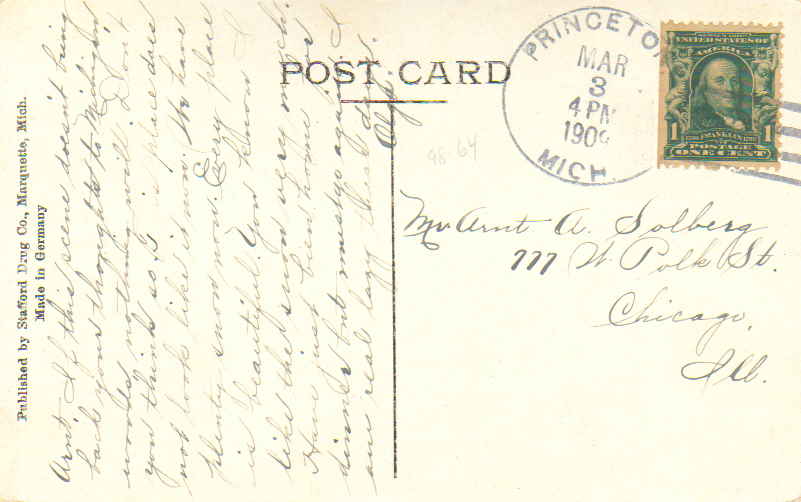 POST CARD
Published by Stafford Drug Co., Marquette, Mich.
Made in Germany
PRINCETO
MAR
3
4 PM
1909
MICH
UNITED STATES OF
AMERICA
1
FRANKLIN
1
POSTAGE
ONE CENT
98-64
Mr Arnt A. Solberg
777 W. Polk St.
Chicago,
Ill.
Arnt, If this scene doesn't bring
back your thoughts to Michigan
woods nothing will. Don't
you think so. This place does
not look like is now. We have
plenty snow now. Every place
is beautiful. You know I
like the snow very much.
Have just been home for
dinner but must go again. I
am real lazy these days.
Olga.